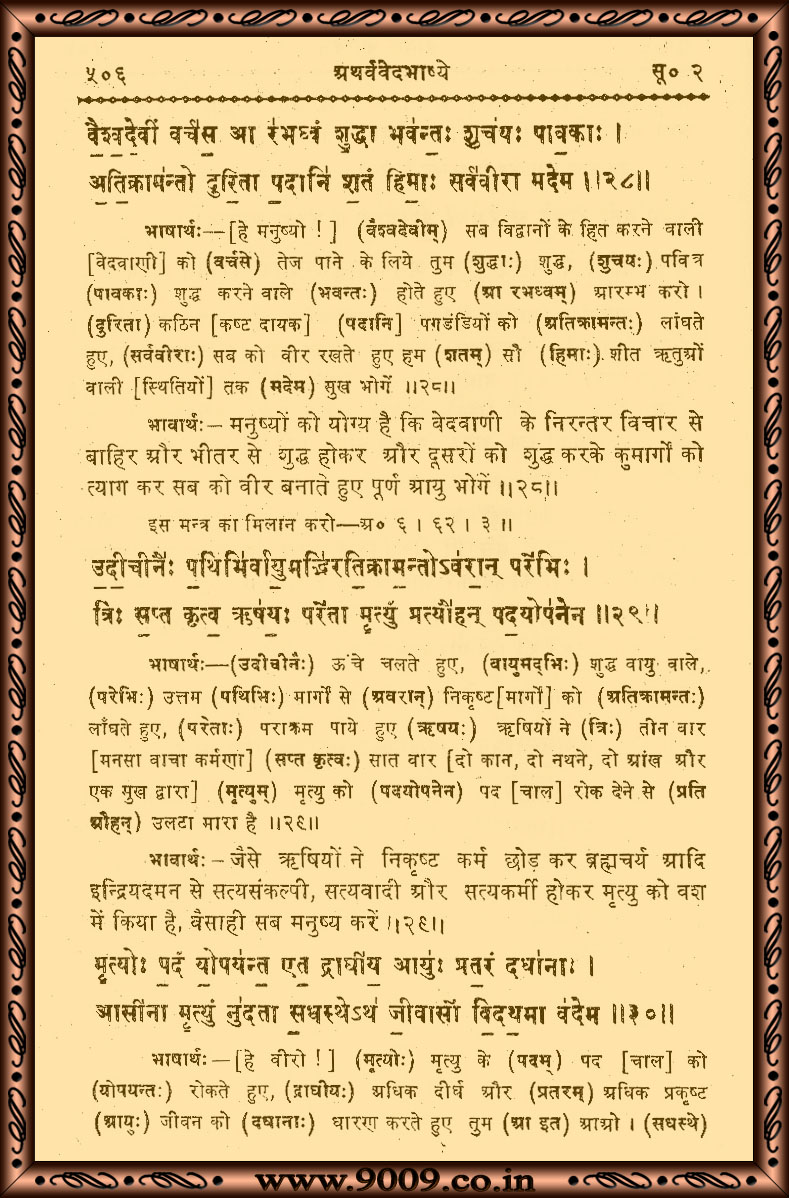 ५०६ अथर्ववेदभाष्ये सू० २
वै॒श्व॒दे॒वीं वर्च॑स॒ आ र॑भध्वं शु॒द्धा भव॑न्तः॒ शुच॑यः पाव॒काः ।
अ॒ति॒क्राम॑न्तो दुरि॒ता प॒दानि॑ श॒तं हिमाः॒ सर्व॑वीरा मदेम ॥२८॥
भाषार्थः—[हे मनुष्यो !] (वैश्वदेवीम्) सब विद्वानों के हित करने वाली
[वेदवाणी] को (वर्चसे) तेज पाने के लिये तुम (शुद्धाः) शुद्ध, (शुचयः) पवित्र
(पावकाः) शुद्ध करने वाले (भवन्तः) होते हुए (आ रभध्वम्) आरम्भ करो ।
(दुरिता) कठिन [कष्ट दायक] (पदानि] पगडंडियों को (अतिक्रामन्तः) लांघते
हुए, (सर्ववीराः) सब को वीर रखते हुए हम (शतम्) सौ (हिमाः) शीत ऋतुओं
वाली [स्थितियों] तक (मदेम) सुख भोगें ॥२८॥
भावार्थः—मनुष्यों को योग्य है कि वेदवाणी के निरन्तर विचार से
बाहिर और भीतर से शुद्ध होकर और दूसरों को शुद्ध करके कुमार्गों को
त्याग कर सब को वीर बनाते हुए पूर्ण आयु भोगें ॥२८॥
इस मन्त्र का मिलान करो—अ० ६ । ६२ । ३ ॥
उ॒दी॒चीनैः॑ प॒थिभि॑र्वायु॒मद्भि॑रति॒क्राम॒न्तोऽव॑रा॒न् परे॑भिः ।
त्रिः स॒प्त कृत्व॒ ऋष॑यः॒ परे॑ता मृ॒त्युं प्रत्यौ॑हन् पद॒योप॑नेन ॥२९॥
भाषार्थः—(उदीचीनैः) ऊंचे चलते हुए, (वायुमद्भिः) शुद्ध वायु वाले,
(परेभिः) उत्तम (पथिभिः) मार्गों से (अवरान्) निकृष्ट [मार्गों] को (अतिक्रामन्तः)
लाँघते हुए, (परेताः) पराक्रम पाये हुए (ऋषयः) ऋषियों ने (त्रिः) तीन वार
[मनसा वाचा कर्मणा] (सप्त कृत्वः) सात वार [दो कान, दो नथने, दो आंख और
एक मुख द्वारा] (मृत्युम्) मृत्यु को (पदयोपनेन) पद [चाल] रोक देने से (प्रति
औहन्) उलटा मारा है ॥२९॥
भावार्थः—जैसे ऋषियों ने निकृष्ट कर्म छोड़ कर ब्रह्मचर्य आदि
इन्द्रियदमन से सत्यसंकल्पी, सत्यवादी और सत्यकर्मी होकर मृत्यु को वश
में किया है, वैसाही सब मनुष्य करें ॥२९॥
मृ॒त्योः प॒दं यो॒पय॑न्त॒ एत॒ द्राघी॑य॒ आयुः॑ प्रत॒रं दधा॑नाः ।
आसी॑ना मृ॒त्युं नु॑दता स॒धस्थेऽथ॑ जी॒वासो॑ वि॒दथ॒मा व॑देम ॥३०॥
भाषार्थः—[हे वीरो !] (मृत्योः) मृत्यु के (पदम्) पद [चाल] को
(योपयन्तः) रोकते हुए, (द्राघीयः) अधिक दीर्घ और (प्रतरम्) अधिक प्रकृष्ट
(आयुः) जीवन को (दधानाः) धारण करते हुए तुम (आ इत) आओ । (सधस्थे)
www.9009.co.in